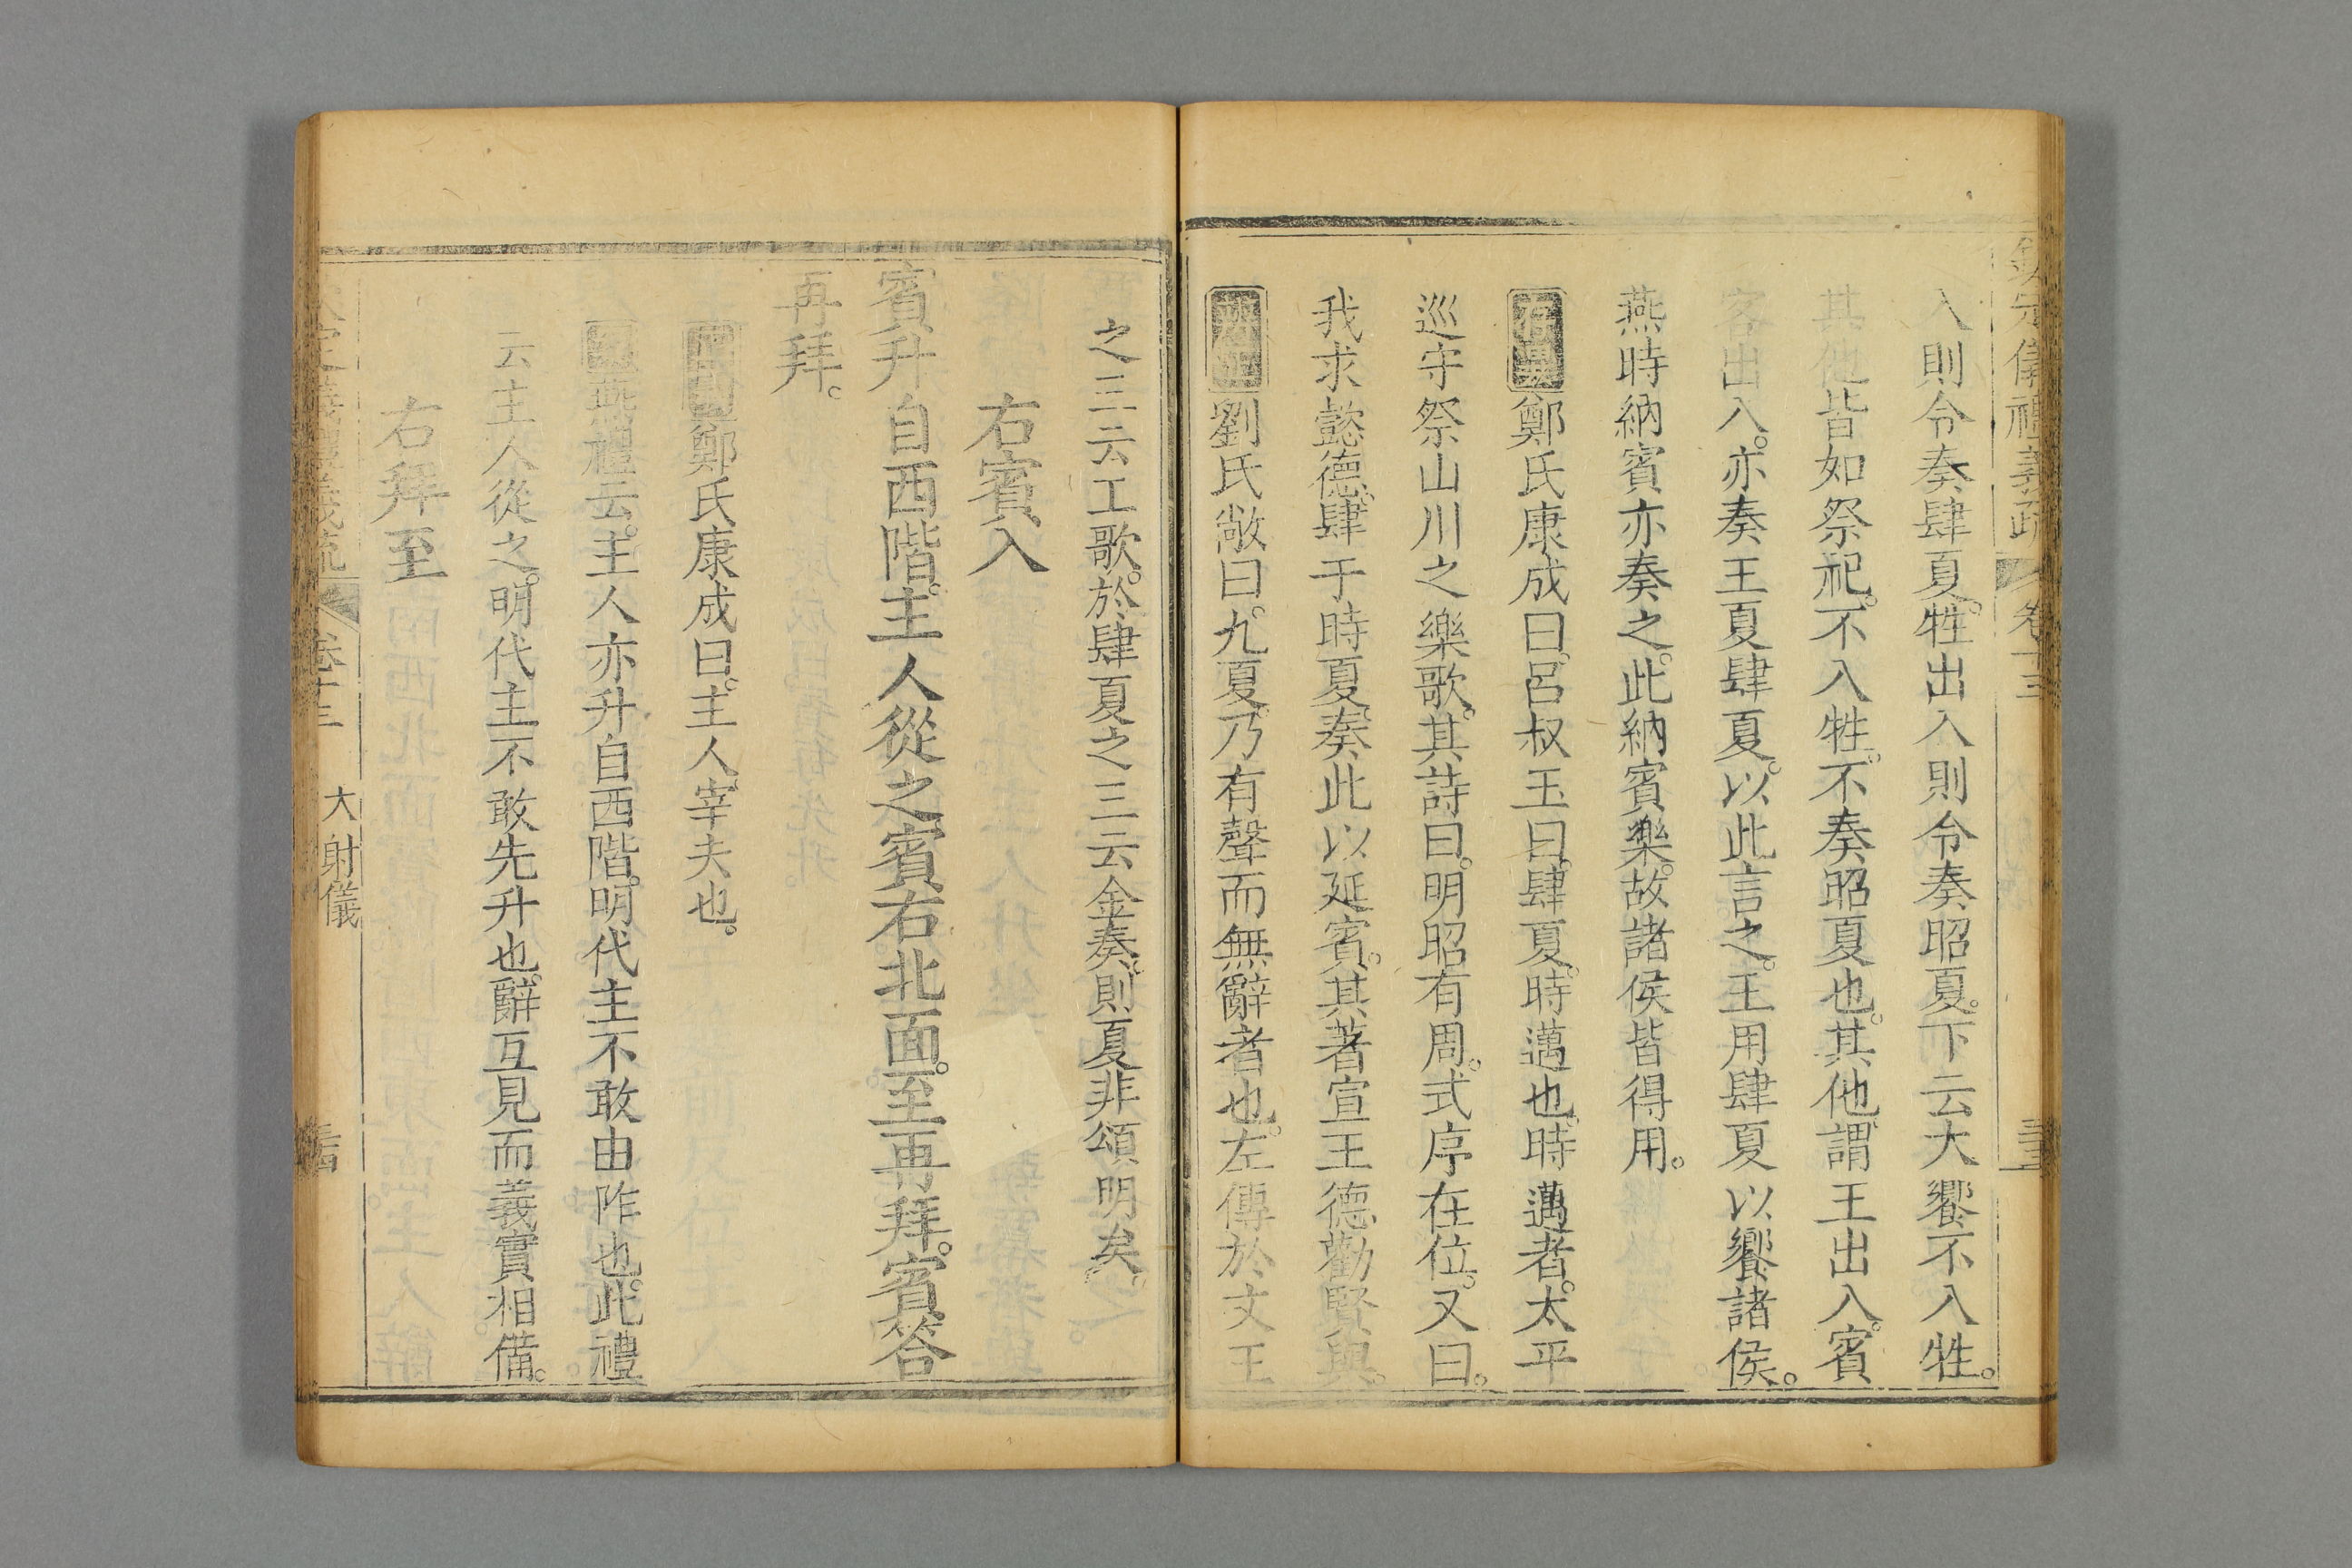 欽定儀禮義疏 卷十三
入則令奏肆夏。牲出入則令奏昭夏。下云大饗不入牲。
其他皆如祭祀。不入牲。不奏昭夏也。其他謂王出入。賓
客出入。亦奏王夏肆夏。以此言之。王用肆夏以饗諸侯。
燕時納賓亦奏之。此納賓樂。故諸侯皆得用。
存異鄭氏康成曰。呂叔玉曰。肆夏。時邁也。時邁者。太平
巡守祭山川之樂歌。其詩曰。明昭有周。式序在位。又曰。
我求懿德。肆于時夏。奏此以延賓。其著宣王德勸賢與。
辨正劉氏敞曰。九夏。乃有聲而無辭者也。左傳於文王
之三云工歌。於肆夏之三云金奏。則夏非頌明矣。
右賓入
賓升自西階。主人從之。賓右北面。至再拜。賓答
再拜。
正義鄭氏康成曰。主人。宰夫也。
案燕禮云。主人亦升自西階。明代主不敢由阼也。此禮
云主人從之。明代主不敢先升也。辭互見而義實相備。
右拜至
欽定儀禮義疏 卷十三 大射儀